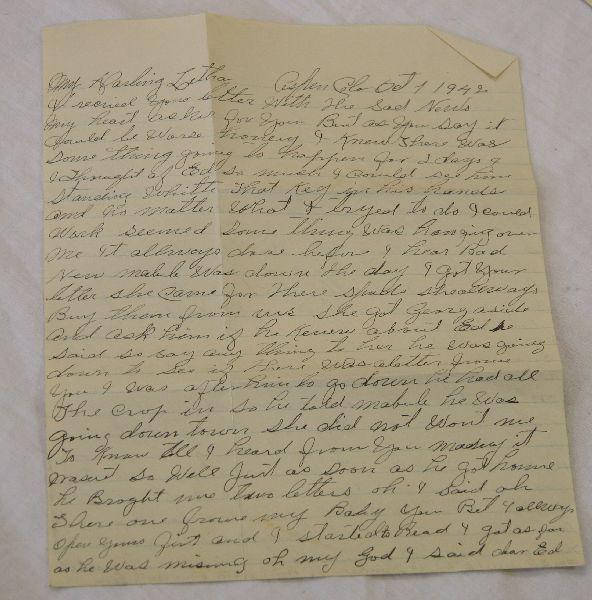 My Darling Letha Aspen Colo Oct 1 1942
I received your letter With the Sad News
my heart askes for you But as you say it
Could be Worse honey I Knew there was
Some thing going to happen for 2 days
I thought of Ed so much I could see him
Standing Whitt that Key in his hands
and no matter What I tryed to do I could
Work seemed some thing was hanging over
me it allways dose before I hear Bad
New mabele was down the day I got your
letter she came for there spuds she allways
Buy them from us she got Georg aside
and ask him if he knew about Ed he
said so say any thing to her he was going
down to see if there was a letter from
you I was after him to go down he had all
The crop in so he told mabule he was
going down town she did not Wont me
To know till I heard from you masey it
wasent so Well Just as soon as he got home
he Broght me two letters oh I said oh
there one from my Baby you Bet I allways
open yours first and I started to Read I got as far
as he was missing oh my God I said dear Ed